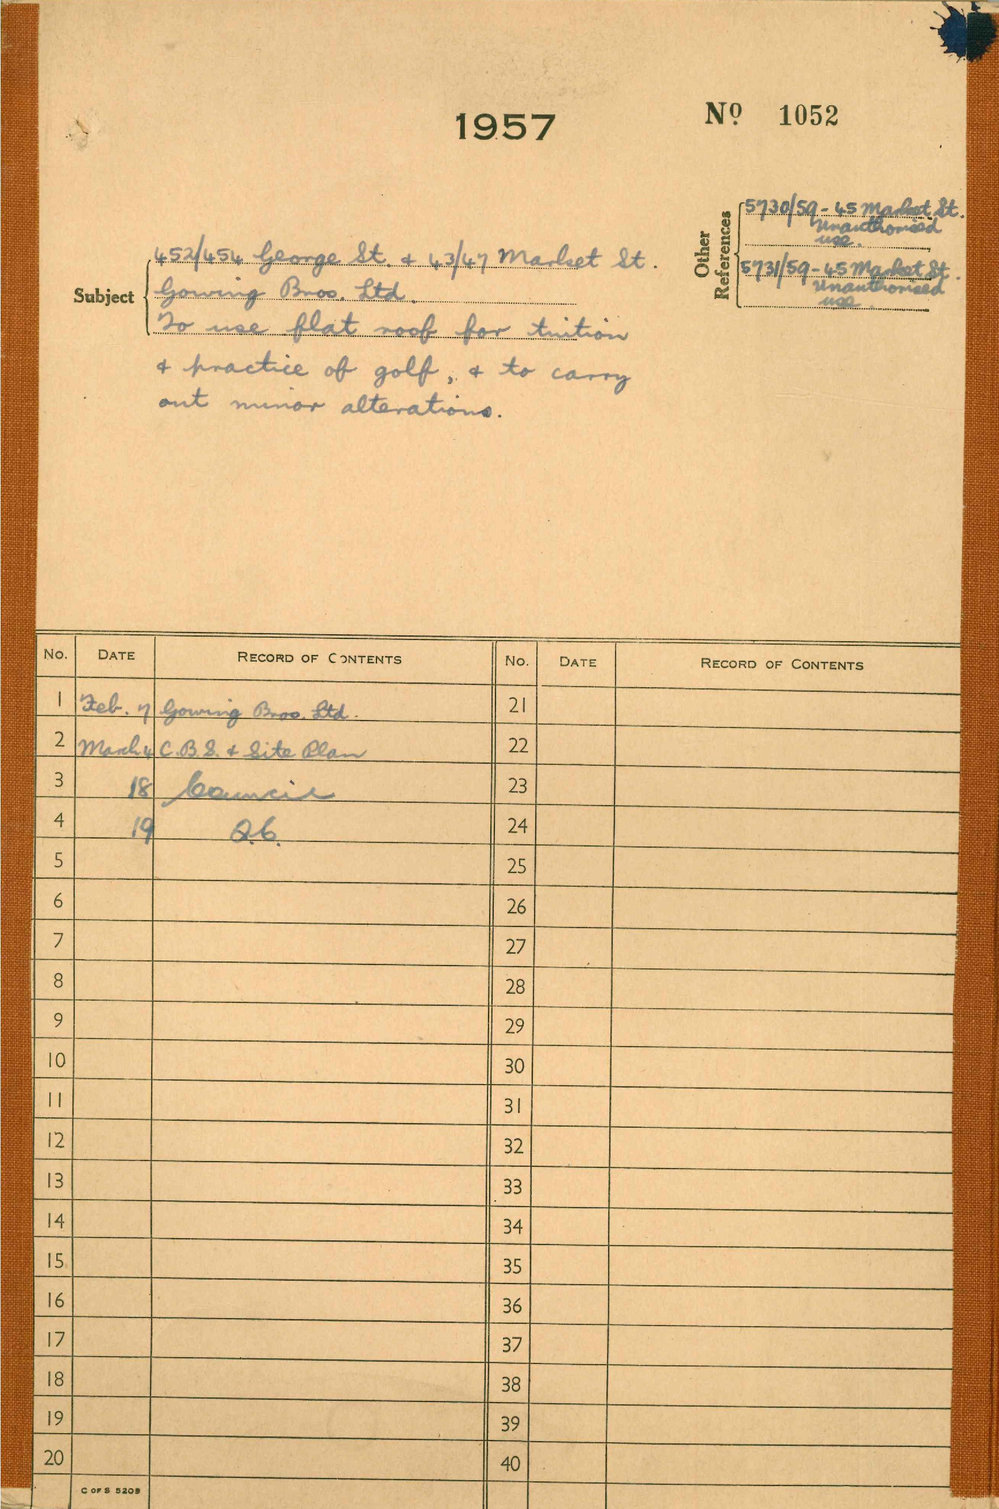 1957
Nº 1052
Other References
5730/59 - 45 Market St.
Unauthorised
use.
5731/59 - 45 Market St.
Unauthorised
use.
Subject
452/454 George St. & 43/47 Market St.
Gowing Bros. Ltd.
To use flat roof for tuition
& practice of golf, & to carry
out minor alterations.
No. DATE RECORD OF CONTENTS No. DATE RECORD OF CONTENTS
1 Feb. 7 Gowing Bros. Ltd. 21
2 March 4 C.B.S. & Site Plan 22
3 18 Council 23
4 19 24
5 25
6 26
7 27
8 28
9 29
10 30
11 31
12 32
13 33
14 34
15 35
16 36
17 37
18 38
19 39
20 40
C OF S 5209